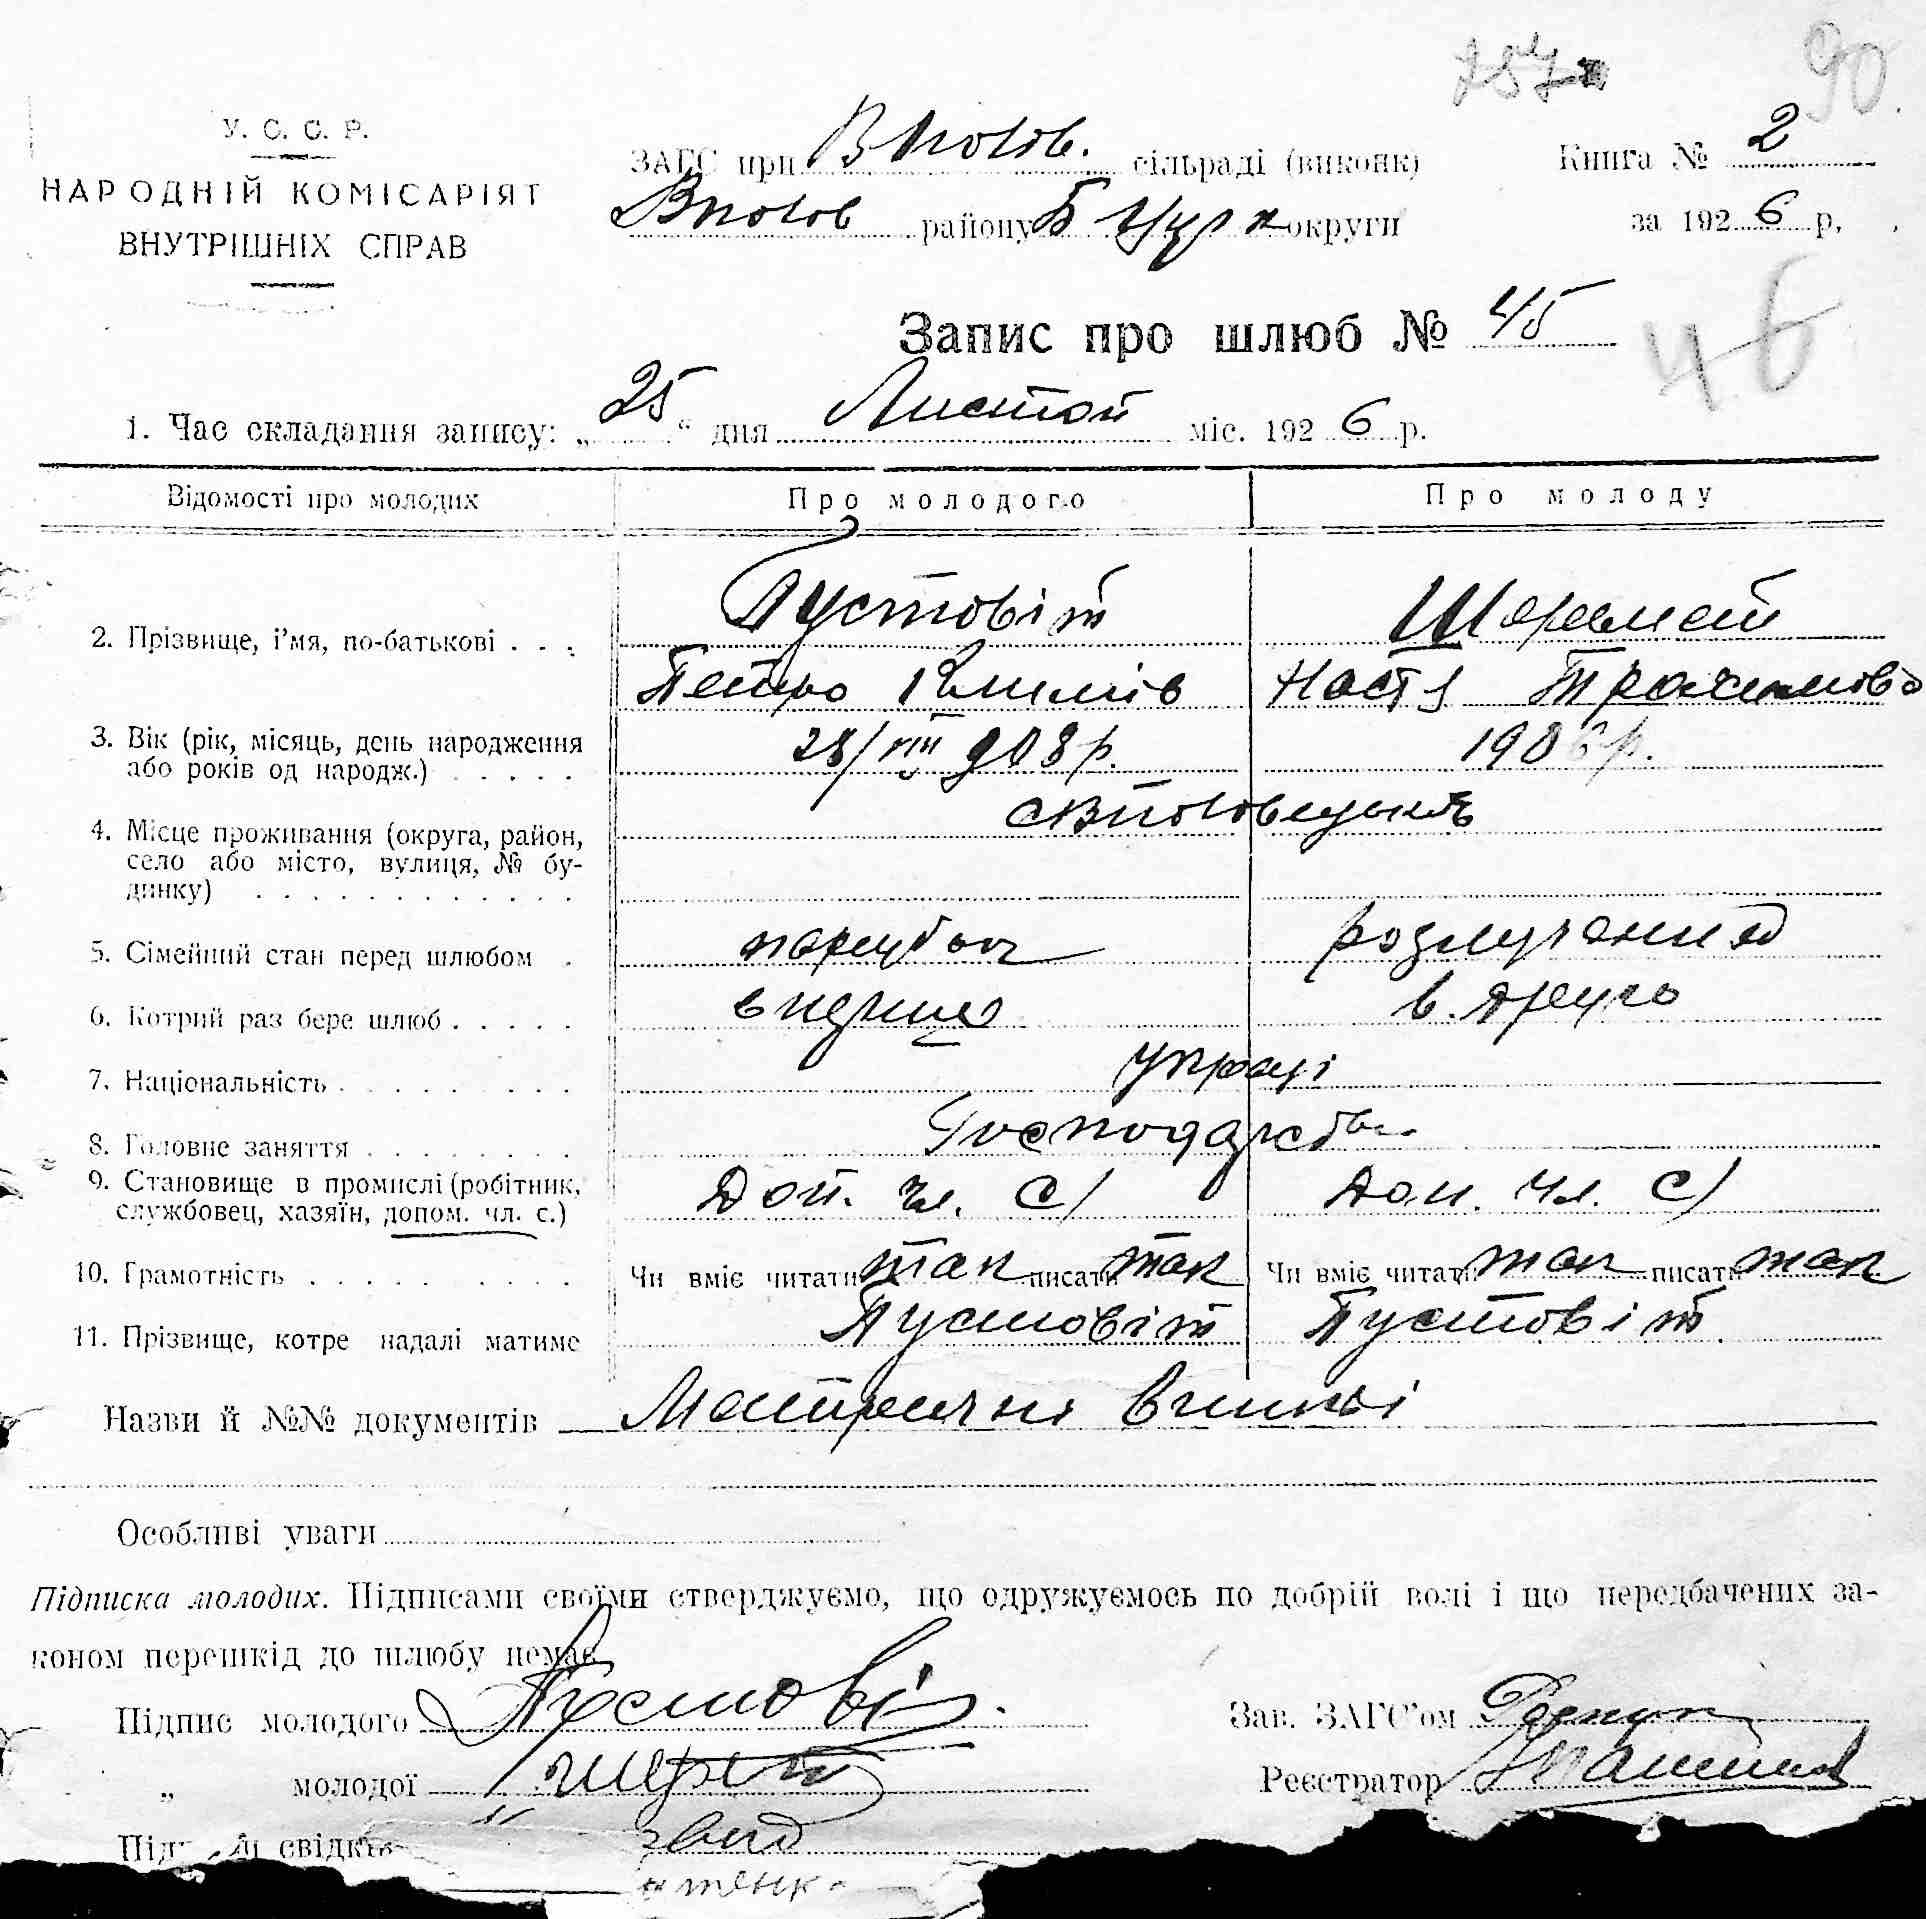 90
У. С. С. Р.
НАРОДНІЙ КОМІСАРІЯТ
ВНУТРІШНІХ СПРАВ
ЗАГС при Вполов. сільраді (виконк) Книга № 2
Вполов району Б Церк округи за 1926 р.
Запис про шлюб № 45
46
1. Час складання запису: „25“ дня Листоп міс. 1926 р.
Відомості про молодих Про молодого Про молоду
2. Прізвище, і’мя, по-батькові . . . Пустовіт Шеремет
Петро Климів Настя Трохимова
3. Вік (рік, місяць, день народження 28/VIII 908 р. 1906 р.
або років од народж.) . . . . .
4. Місце проживання (округа, район,
село або місто, вулиця, № бу-
динку) . . . . . . . . . . . .
5. Сімейний стан перед шлюбом . парубок розлучена
6. Котрий раз бере шлюб . . . . . вперше в. друге
7. Національність . . . . . . . . . Украці
8. Головне заняття . . . . . . . . Господарство
9. Становище в промислі (робітник, Доп. чл. с) Доп. чл. с)
службовец, хазяїн, допом. чл. с.)
10. Грамотність . . . . . . . . . . Чи вміє читати так писати так Чи вміє читати так писати так
11. Прізвище, котре надалі матиме Пустовіт Пустовіт
Назви й №№ документів Метричні
Особливі уваги
Підписка молодих. Підписами своїми стверджуємо, що одружуємось по добрій волі і що передбачених за-
коном перешкід до шлюбу немає
Підпис молодого Пустовіт Зав. ЗАГС’ом
„ молодої Реєстратор
свідків